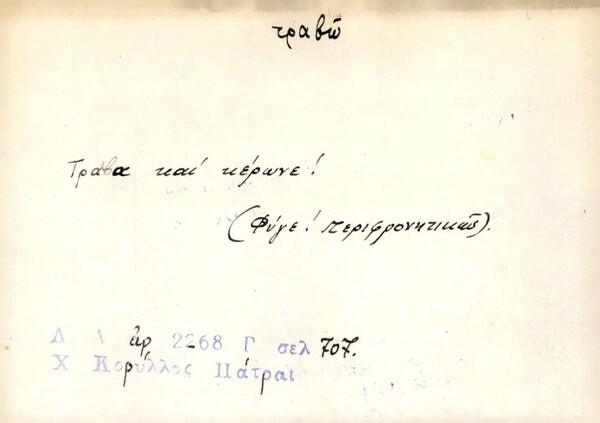 τραβῶ
Τραβα καί κέρωνε!
(Φύγε! περιφρονητικῶς).
Λ Α ἀρ 2268 Γ σελ 707.
Χ Κορύλλος Πάτραι